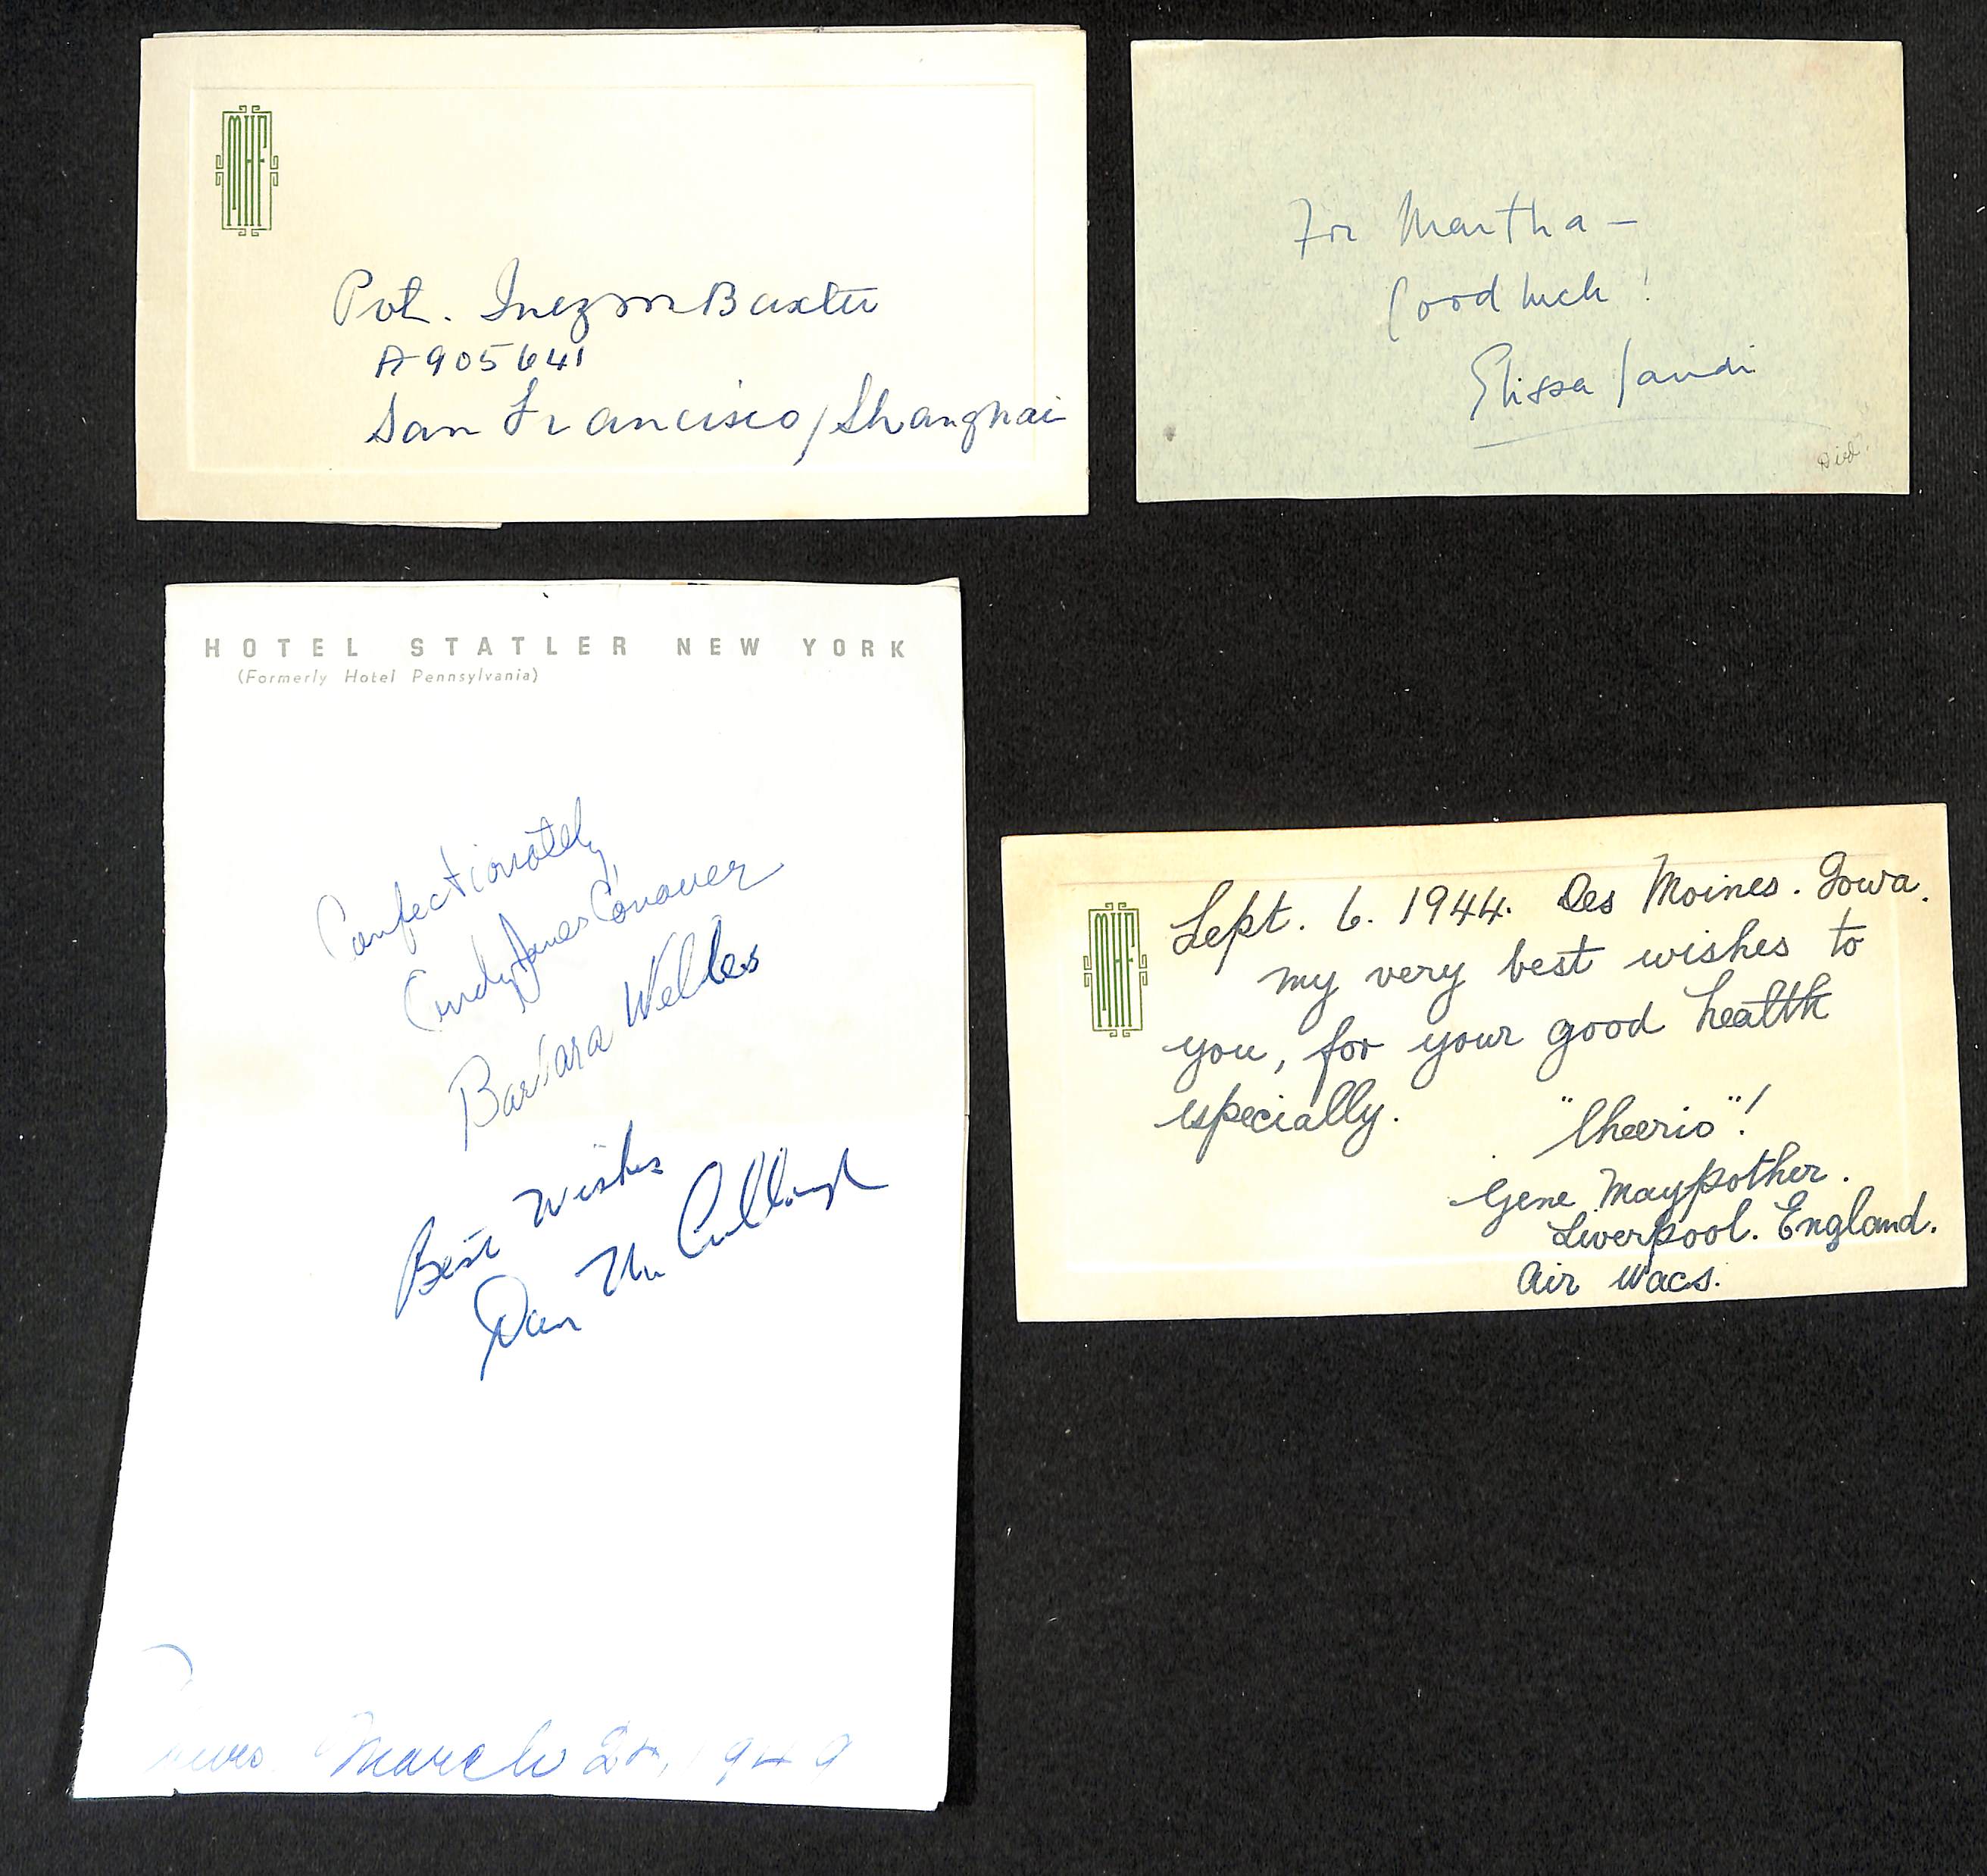 MHF
Pvt. Inez M Baxter
A905641
San Francisco/Shanghai
For Martha —
Good luck!
Elissa Landi
Died
HOTEL STATLER NEW YORK
(Formerly Hotel Pennsylvania)
Confectionately
Candy Jones Conover
Barbara Welles
Best Wishes
Dan McCullough
March 1949
MHF
Sept. 6. 1944. Des Moines. Iowa.
my very best wishes to
you, for your good health
especially.
"Cheerio"!
Gene Maypother.
Liverpool. England.
Air Wacs.